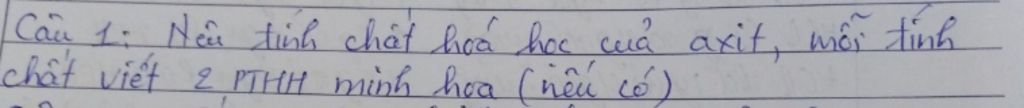 Câu 1: Nêu tính chất hoá học cuả axit, mỗi tính
chất viết 2 PTHH minh hoa (nếu có)